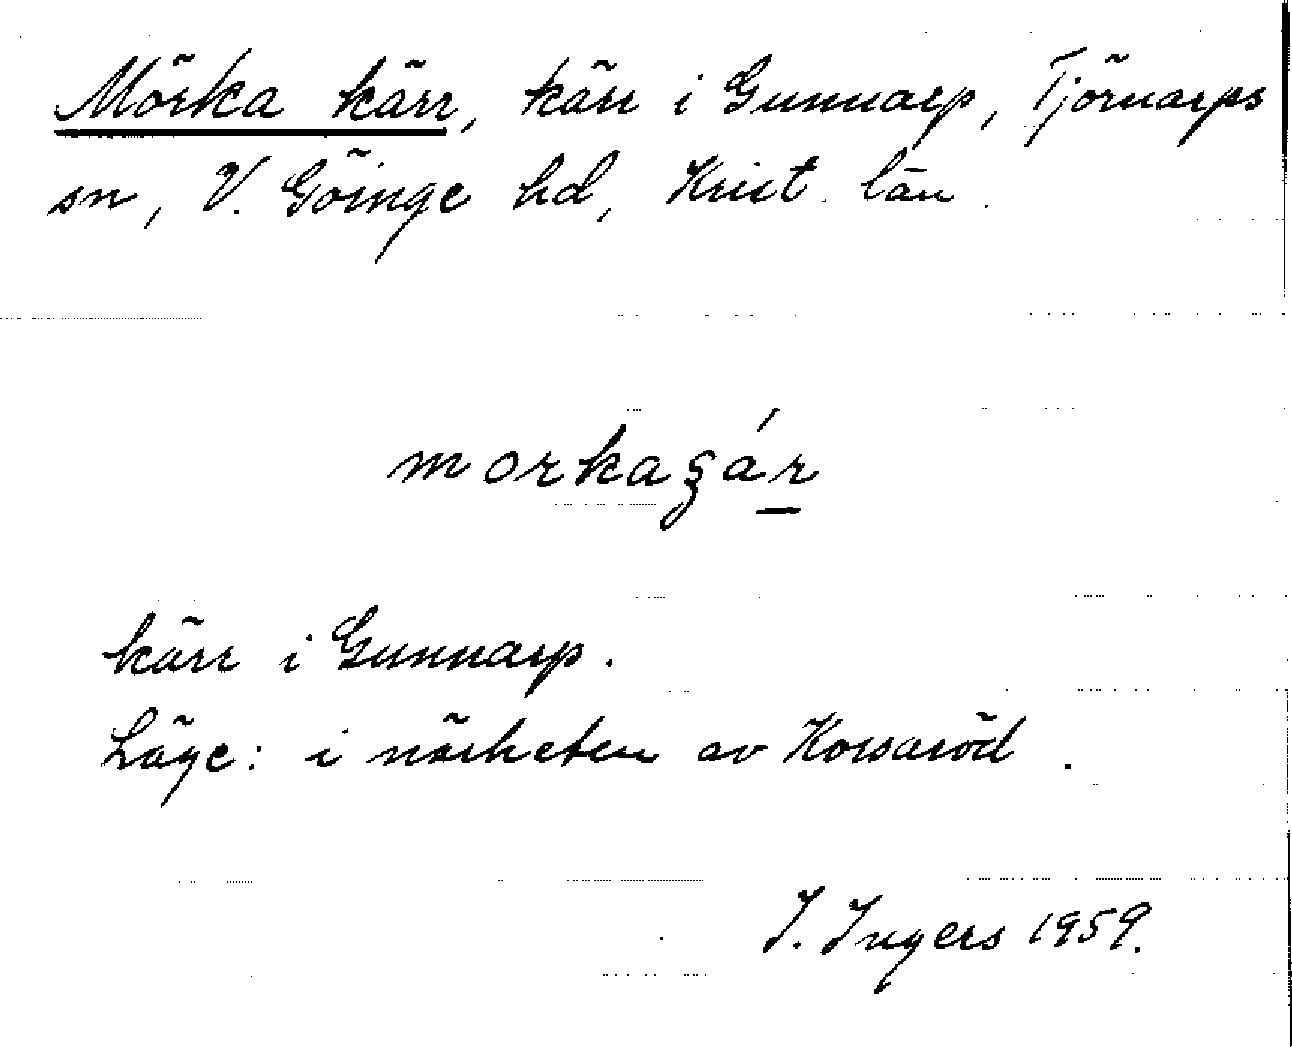 Mörka kärr, kärr i Gunnarp, Tjörnarps
sn, V. Göinge hd, Krist. län.
kärr i Gunnarp.
Läge: i närheten av Korsaröd.
I. Ingers 1959.